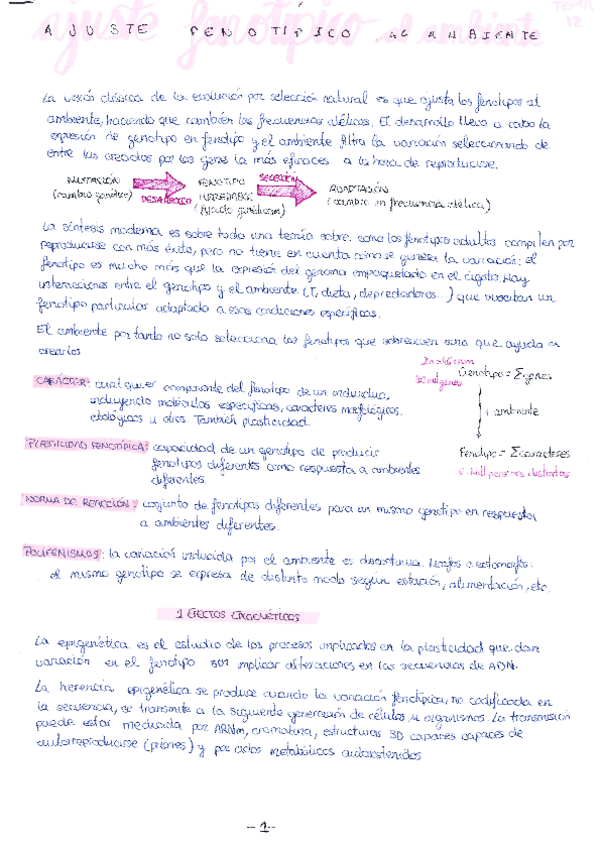 TEMA 12
ajuste fenotípico al ambiente
AJUSTE FENOTIPICO AL AMBIENTE
La visión clásica de la evolución por selección natural es que ajusta los fenotipos al
ambiente, haciendo que cambien las frecuencias alélicas. El desarrollo lleva a cabo la
expresión de genotipo en fenotipo y el ambiente filtra la variación seleccionando de
entre las creadas por los genes la más eficaces a la hora de reproducirse.
MUTACIÓN
(cambio genético)
DESARROLLO
FENOTIPO
HEREDABLE
(fijado genéticam)
SELECCIÓN
ADAPTACIÓN
(cambio en frecuencia alélica)
La síntesis moderna es sobre todo una teoría sobre como los fenotipos adultos compiten por
reproducirse con más éxito, pero no tiene en cuenta cómo se genera la variación: el
fenotipo es mucho más que la expresión del genoma empaquetado en el cigoto. Hay
interacciones entre el genotipo y el ambiente (T, dieta, depredadores...) que un
fenotipo particular adaptado a esas condiciones específicas.
El ambiente por tanto no solo selecciona los fenotipos que sobreviven sino que ayuda a
crearlos
CARÁCTER: cualquier componente del fenotipo de un individuo,
incluyendo moléculas específicas, caracteres morfológicos,
etológicos u otros También plasticidad.
2n=46crom
genes
Genotipo = Σgenes
ambiente
Fenotipo = Σcaracteres
distintas
PLASTICIDAD FENOTÍPICA: capacidad de un genotipo de producir
fenotipos diferentes como respuesta a ambientes
diferentes.
NORMA DE REACCIÓN: conjunto de fenotipos diferentes para un mismo genotipo en respuesta
a ambientes diferentes.
POLIFENISMOS: la variación inducida por el ambiente es discontinua. Morfos o ecomorfos:
el mismo genotipo se expresa de distinto modo según estación, alimentación, etc.
1 EFECTOS EPIGENÉTICOS
La epigenética es el estudio de los procesos implicados en la plasticidad que dan
variación en el fenotipo sin implicar alteraciones en las secuencias de ADN.
La herencia epigenética se produce cuando la variación fenotípica, no codificada en
la secuencia, se transmite a la siguiente generación de células u organismos. La transmisión
puede estar mediada por ARNm, cromatina, estructuras 3D capaces capaces de
autorreproducirse (priones) y por ciclos metabólicos autosostenidos
-- 1 --